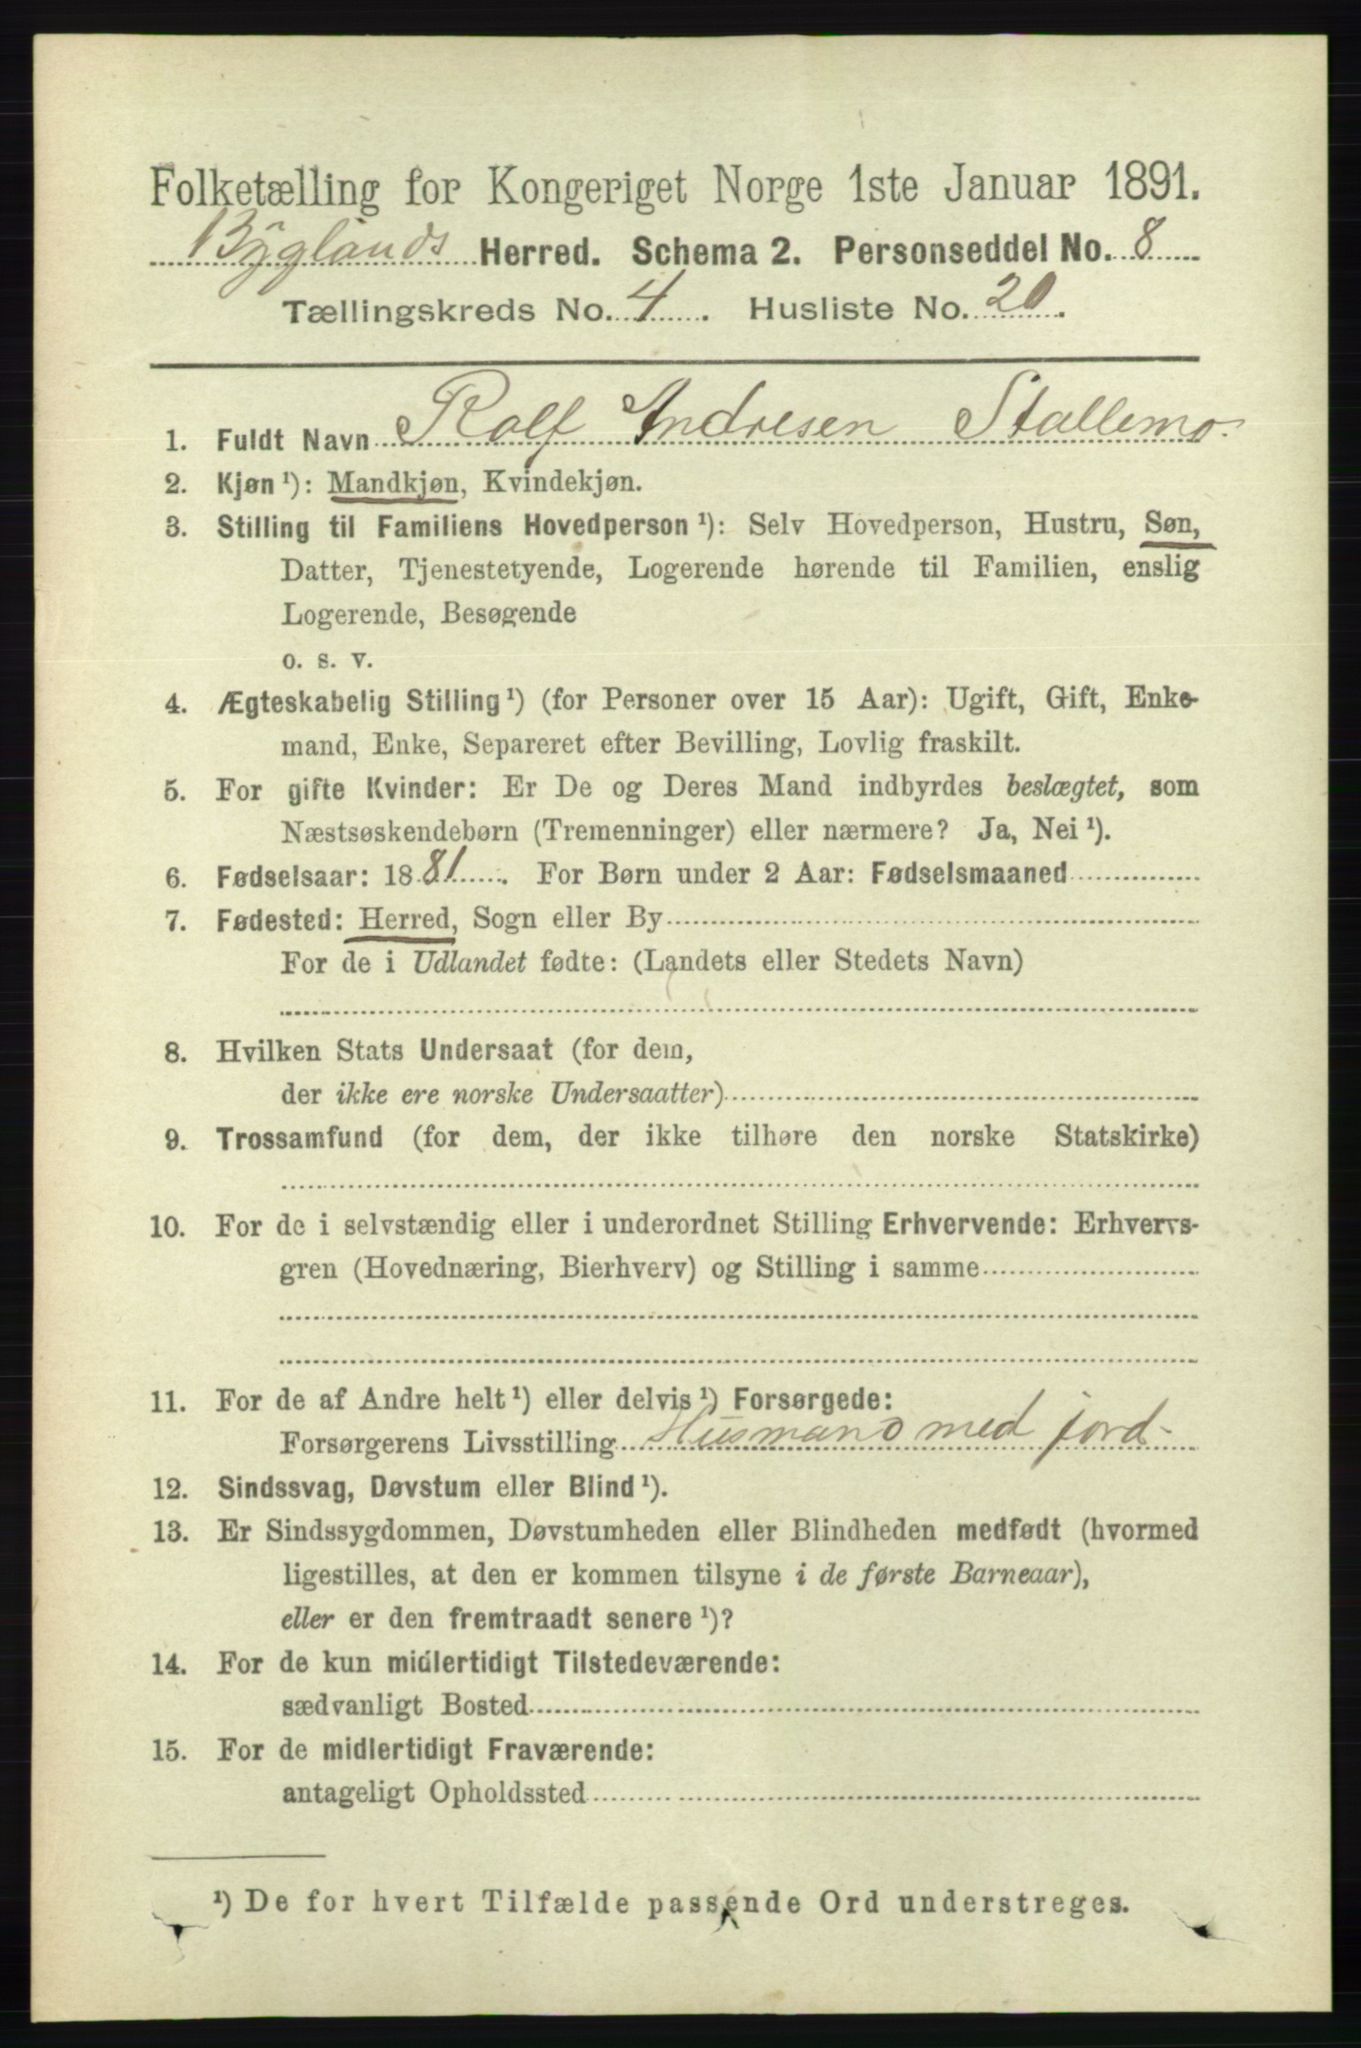 Folketælling for Kongeriget Norge 1ste Januar 1891.
Byglands Herred. Schema 2. Personseddel No. 8
Tællingskreds No. 4. Husliste No. 20.
1. Fuldt Navn Rolf Andresen Stallemo.
2. Kjøn¹): Mandkjøn, Kvindekjøn.
3. Stilling til Familiens Hovedperson¹): Selv Hovedperson, Hustru, Søn,
Datter, Tjenestetyende, Logerende hørende til Familien, enslig
Logerende, Besøgende
o. s. v.
4. Ægteskabelig Stilling¹) (for Personer over 15 Aar): Ugift, Gift, Enke-
mand, Enke, Separeret efter Bevilling, Lovlig fraskilt.
5. For gifte Kvinder: Er De og Deres Mand indbyrdes beslægtet, som
Næstsøskendebørn (Tremenninger) eller nærmere? Ja, Nei¹).
6. Fødselsaar: 1881. For Børn under 2 Aar: Fødselsmaaned
7. Fødested: Herred, Sogn eller By
For de i Udlandet fødte: (Landets eller Stedets Navn)
8. Hvilken Stats Undersaat (for dem,
der ikke ere norske Undersaatter)
9. Trossamfund (for dem, der ikke tilhøre den norske Statskirke)
10. For de i selvstændig eller i underordnet Stilling Erhvervende: Erhvervs-
gren (Hovednæring, Bierhverv) og Stilling i samme
11. For de af Andre helt¹) eller delvis¹) Forsørgede:
Forsørgerens Livsstilling Husmand med jord-
12. Sindssvag, Døvstum eller Blind¹).
13. Er Sindssygdommen, Døvstumheden eller Blindheden medfødt (hvormed
ligestilles, at den er kommen tilsyne i de første Barneaar),
eller er den fremtraadt senere¹)?
14. For de kun midlertidigt Tilstedeværende:
sædvanligt Bosted
15. For de midlertidigt Fraværende:
antageligt Opholdssted
¹) De for hvert Tilfælde passende Ord understreges.